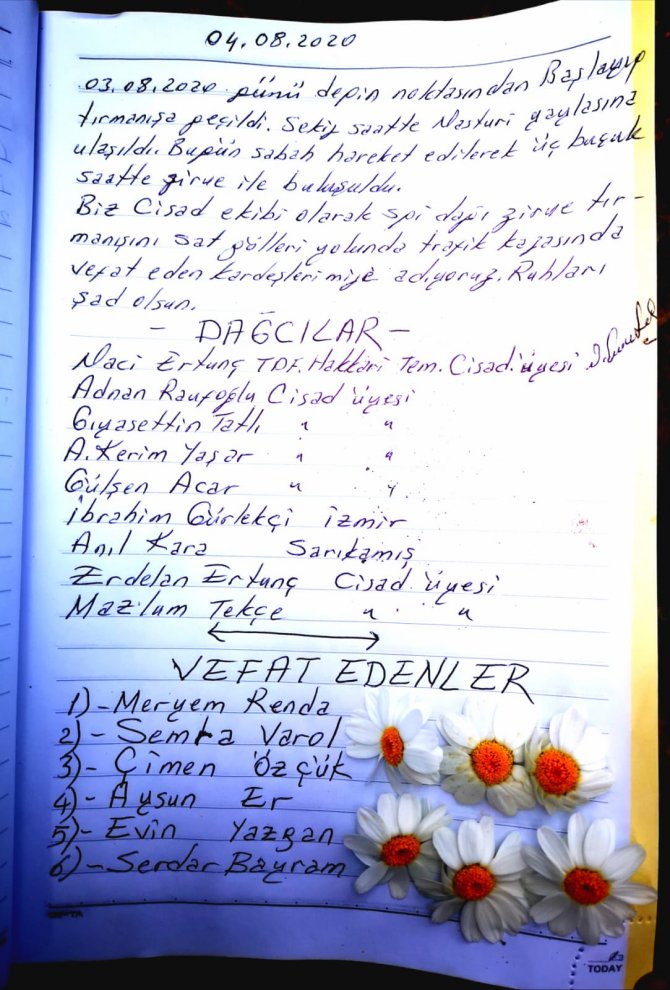 04.08.2020
03.08.2020 günü depin noktasından Başlayıp
tırmanışa geçildi. Sekiz saatte Nasturi yaylasına
ulaşıldı. Bugün sabah hareket edilerek üç buçuk
saatte zirve ile buluşuldu.
Biz Cisad ekibi olarak spi dağı zirve tır-
manışını sat gölleri yolunda trafik kazasında
vefat eden kardeşlerimize adıyoruz. Ruhları
şad olsun.
- DAĞCILAR -
Naci Ertunç TDF. Hakkari Tem. Cisad. üyesi
Adnan Raufoğlu Cisad üyesi
Gıyasettin Tatlı " "
A. Kerim Yaşar " "
Gülşen Acar " "
İbrahim Gürlekçi İzmir
Anıl Kara Sarıkamış
Erdelan Ertunç Cisad üyesi
Mazlum Tekçe " "
VEFAT EDENLER
1)- Meryem Renda
2)- Semra Varol
3)- Çimen Özçük
4)- Aysun Er
5)- Evin Yazgan
6)- Serdar Bayram
TODAY